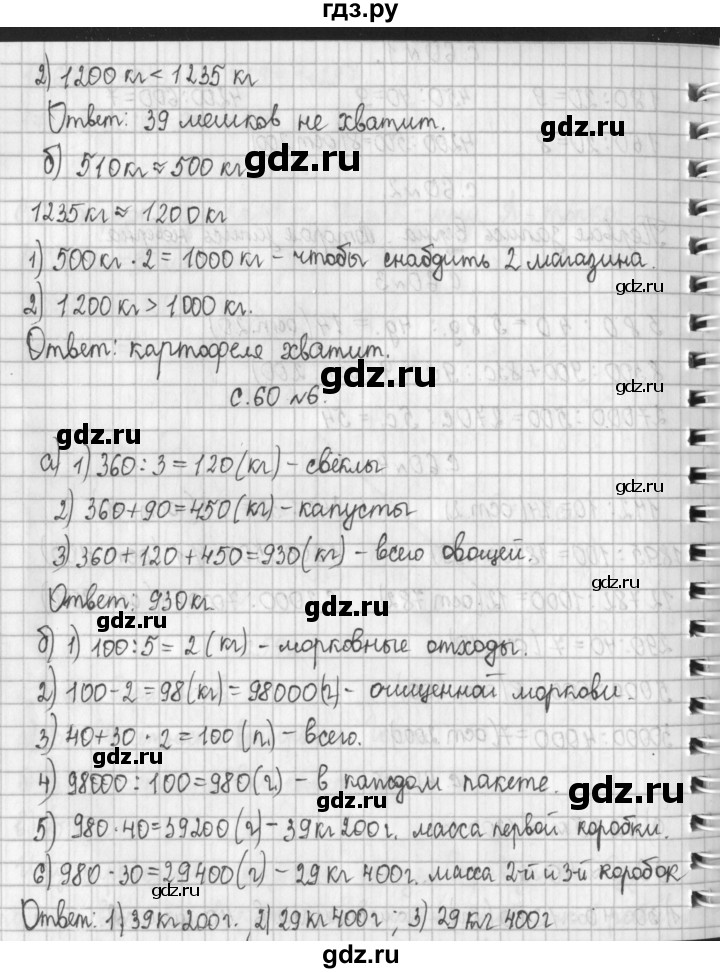 гдз.ру
2) 1200 кг < 1235 кг
Ответ: 39 мешков не хватит.
gdz.ru
gdz.ru
б) 510 кг ≈ 500 кг
1235 кг ≈ 1200 кг
1) 500 кг · 2 = 1000 кг - чтобы снабдить 2 магазина.
gdz.ru
2) 1200 кг > 1000 кг.
Ответ: картофеля хватит.
gdz.ru
gdz.ru
с.60 №6.
gdz.ru
а) 1) 360 : 3 = 120 (кг) - свёклы
gdz.ru
2) 360 + 90 = 450 (кг) - капусты
3) 360 + 120 + 450 = 930 (кг) - всего овощей.
gdz.ru
Ответ: 930 кг
gdz.ru
gdz.ru
б) 1) 100 : 5 = 2 (кг) - морковные отходы.
2) 100 - 2 = 98 (кг) = 98000 (г) - очищенной моркови.
3) 40 + 30 · 2 = 100 (п.) - всего.
4) 98000 : 100 = 980 (г) - в каждом пакете.
gdz.ru
gdz.ru
5) 980 · 40 = 39200 (г) - 39 кг 200 г. масса первой коробки.
6) 980 · 30 = 29400 (г) - 29 кг 400 г. масса 2-й и 3-й коробок
gdz.ru
gdz.ru
Ответ: 1) 39 кг 200 г. 2) 29 кг 400 г ; 3) 29 кг 400 г
gdz.ru